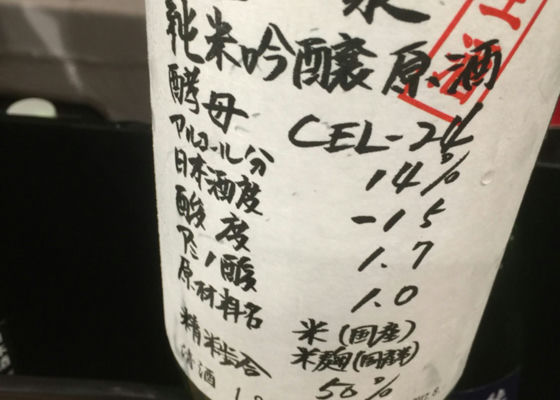 泉
純米吟醸原酒
酵母 CEL-24
アルコール分 14%
日本酒度 -15
酸度 1.7
アミノ酸 1.0
原材料名 米(国産)
米麹(国産米)
精米歩合 50%
清酒